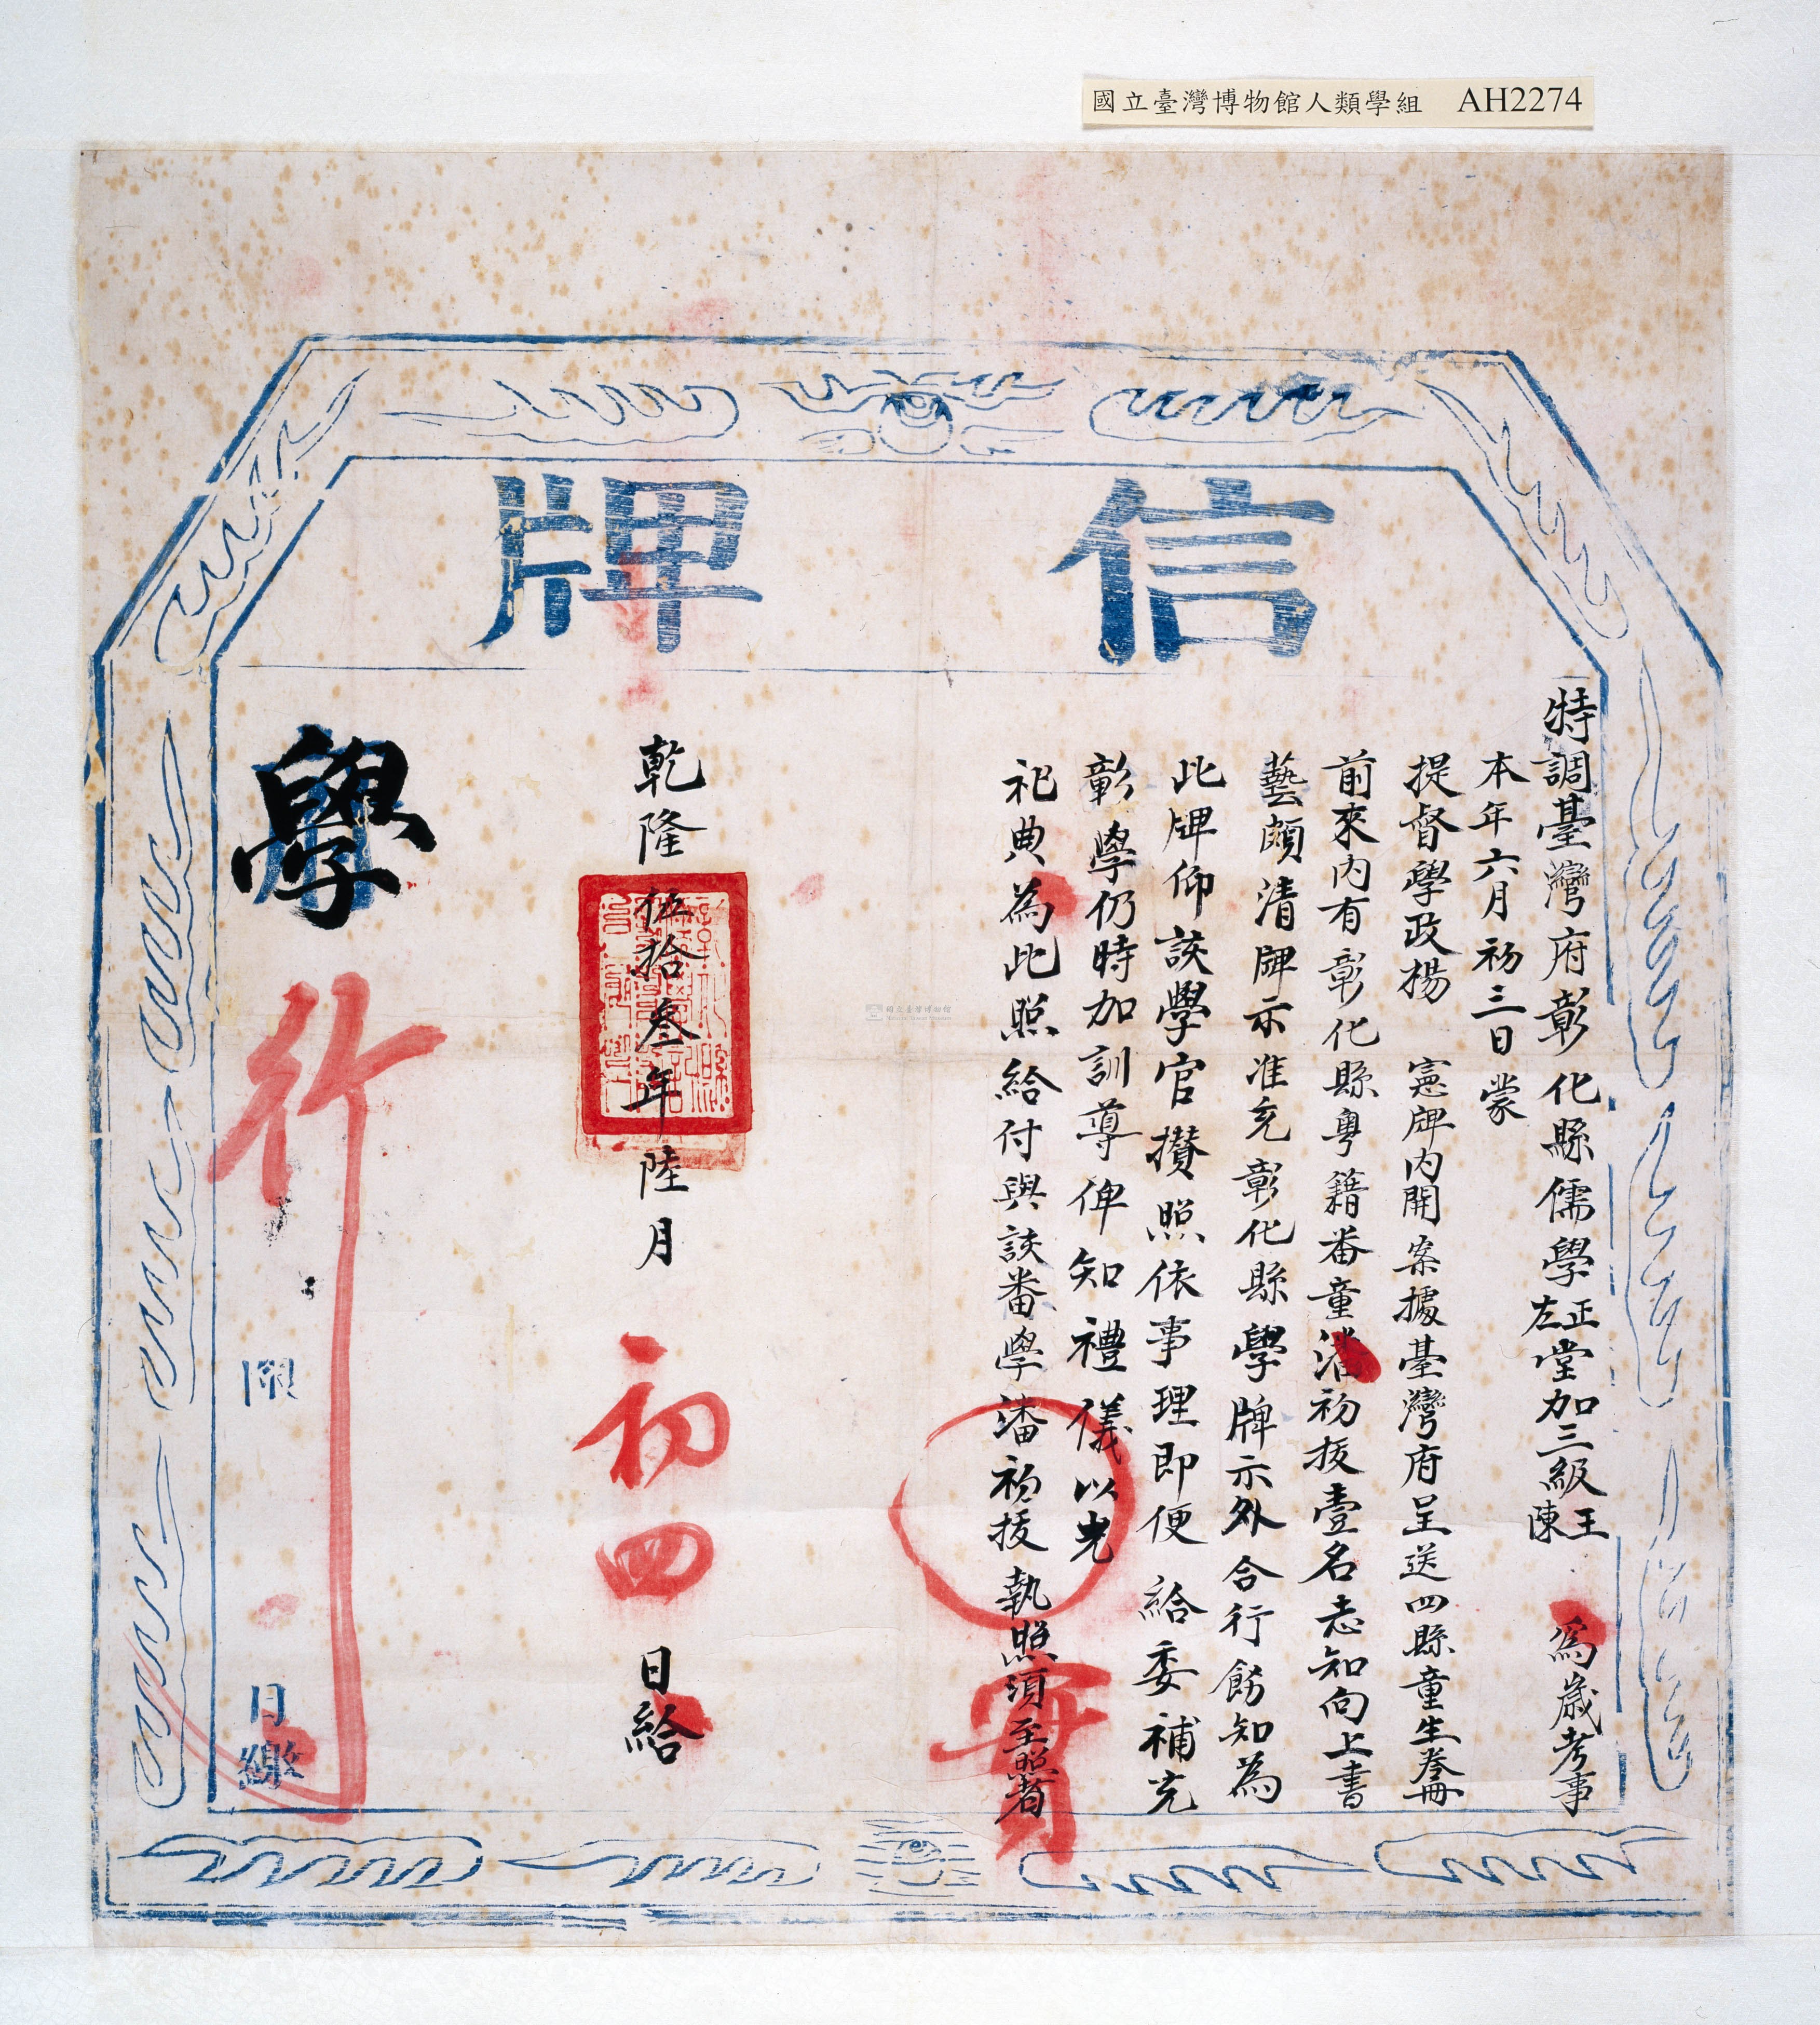 國立臺灣博物館人類學組 AH2274
信牌
特調臺灣府彰化縣儒學正左堂加三級王陳 為歲考事
本年六月初三日蒙
提督學政楊 憲牌內開案據臺灣府呈送四縣童生卷冊
前來內有彰化縣粵籍番童潘初拔壹名志知向上書
藝頗清牌示准充彰化縣學牌示外合行飭知為
此牌仰該學官攢照依事理即便給委補充
彰學仍時加訓導俾知禮儀以光
祀典為此照給付與該番學潘初拔執照須至照者
實
乾隆伍拾叁年陸月初四日給
國立臺灣博物館
學行
限 日繳